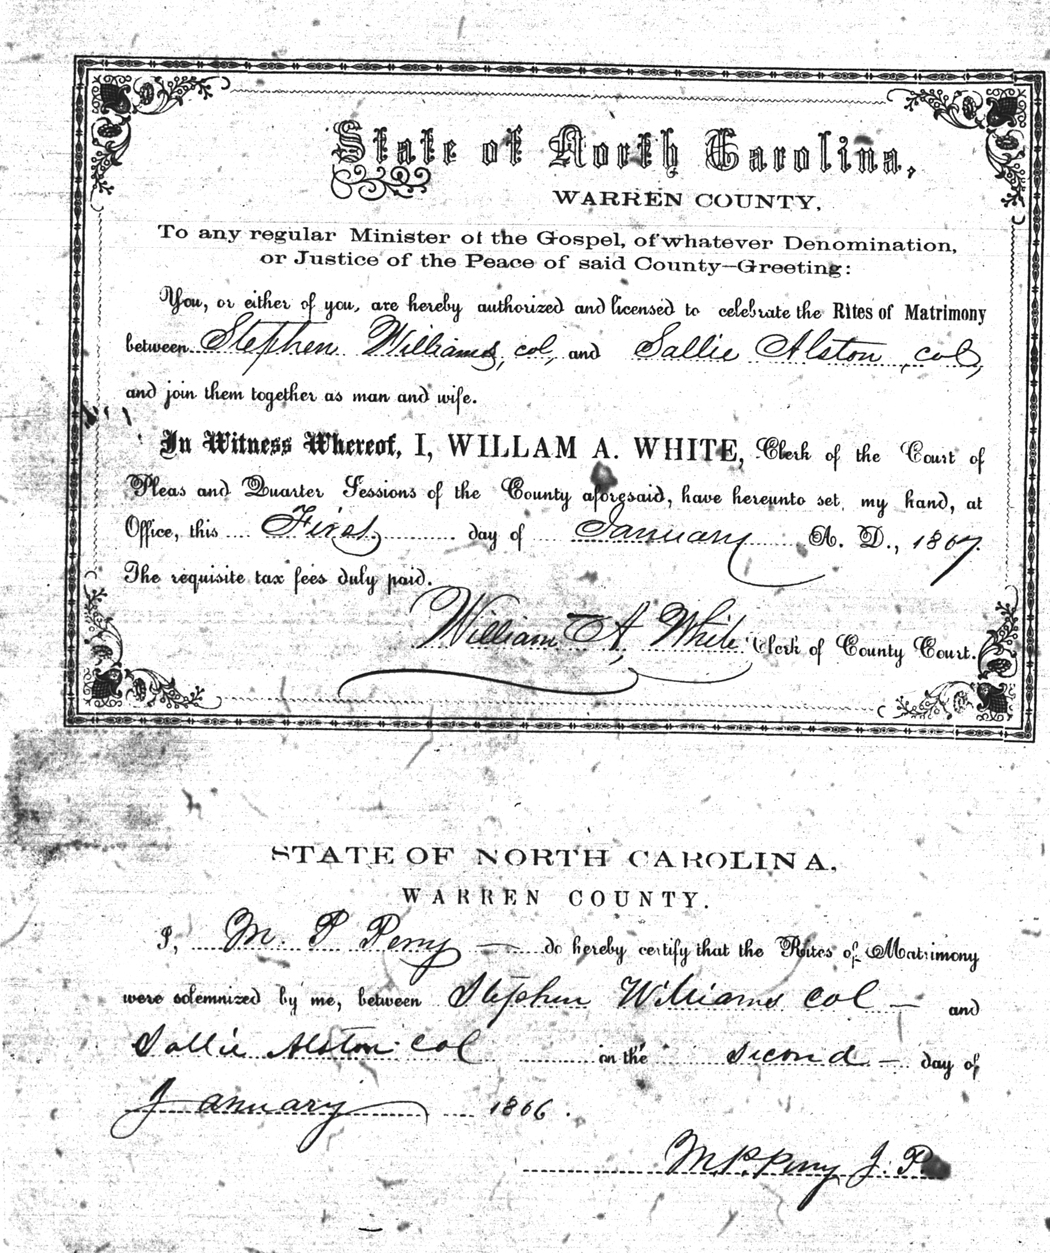 State of North Carolina,
WARREN COUNTY,
To any regular Minister of the Gospel, of whatever Denomination,
or Justice of the Peace of said County—Greeting:
You, or either of you, are hereby authorized and licensed to celebrate the Rites of Matrimony
between Stephen Williams, col, and Sallie Alston, col,
and join them together as man and wife.
In Witness Whereof, I, WILLAM A. WHITE, Clerk of the Court of
Pleas and Quarter Sessions of the County aforesaid, have hereunto set my hand, at
Office, this First day of January A. D., 1867.
The requisite tax fees duly paid.
William A, White Clerk of County Court.
STATE OF NORTH CAROLINA,
WARREN COUNTY.
I, M. P Perry do hereby certify that the Rites of Matrimony
were solemnized by me, between Stephen Williams col and
Sallie Alston col on the second day of
January 1866.
M. P. Perry J. P.